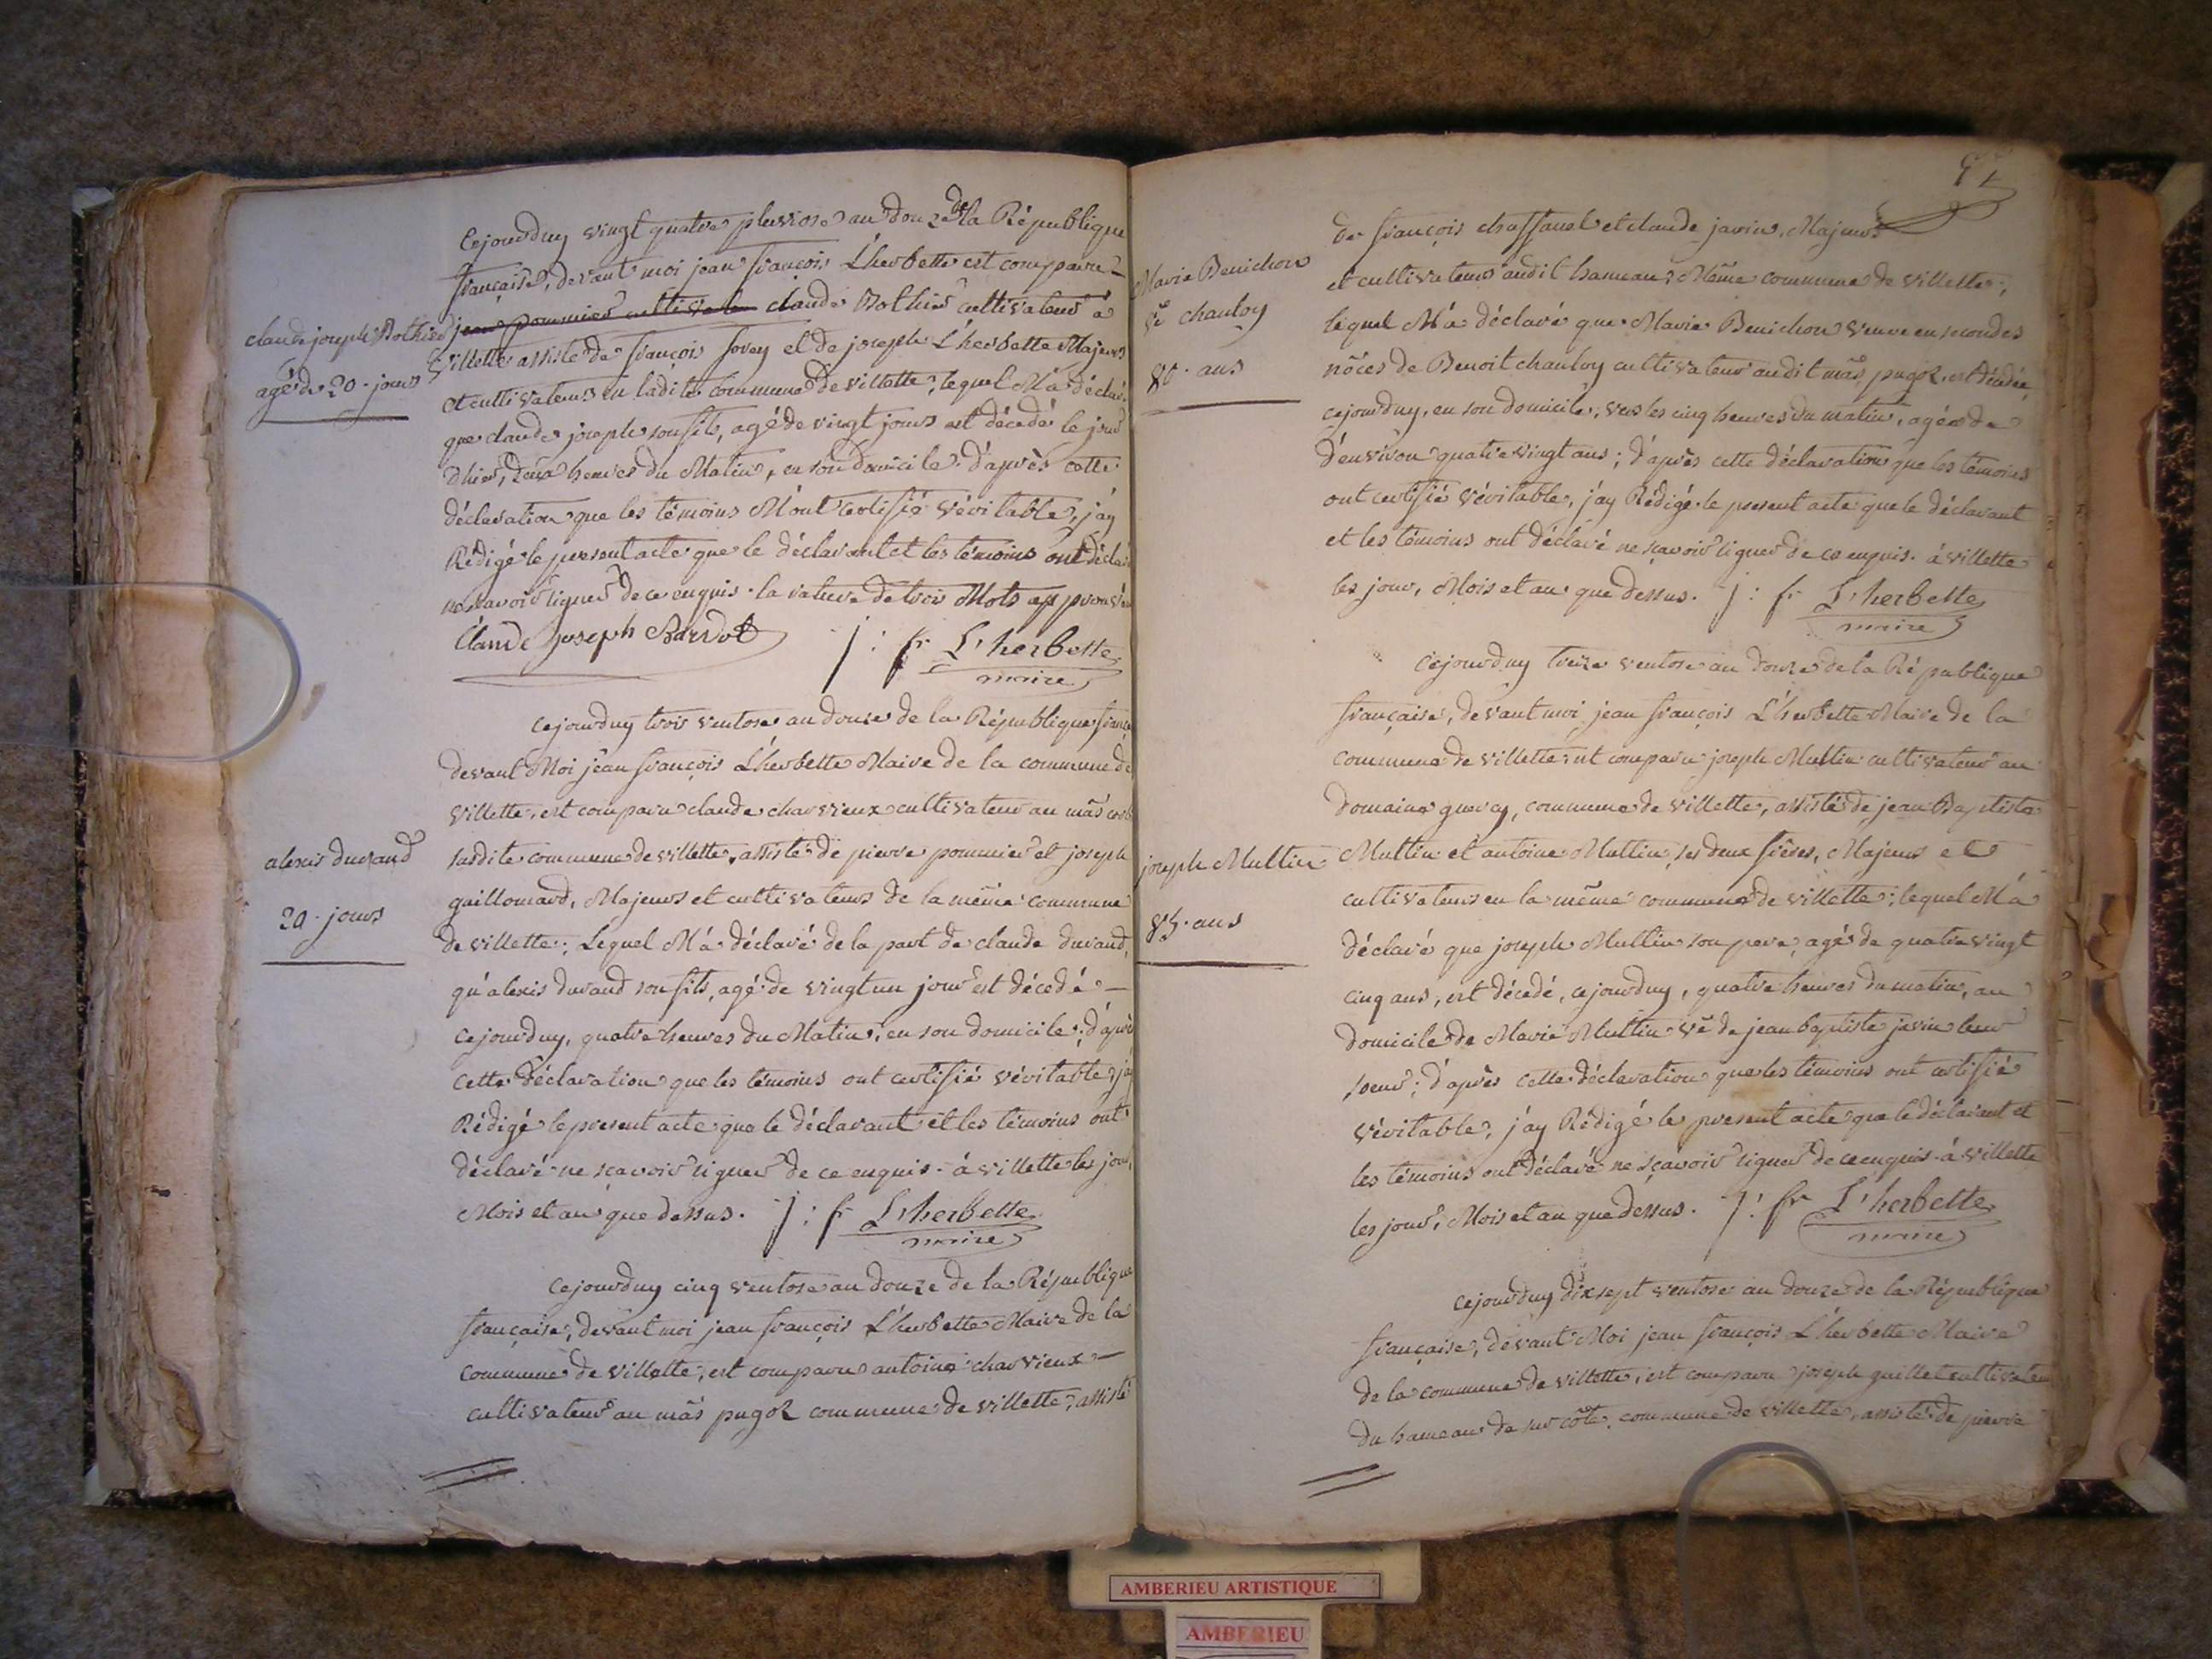 claude joseph Bothier
agé de 20. jours
Cejourduy vingt quatre pluviose an douze de la République
française, devant moi jean françois L'herbette est comparu
jean pommier cultivate claude Bothier cultivateur à
villette assisté de françois fovey et de joseph L'herbette Majeurs
et cultivateurs en ladite commune de villette, lequel M'a déclaré
que claude joseph son fils, agé de vingt jours est décédé le jour
d'hier, deux heures du Matin, en son domicile. d'après cette
déclaration que les témoins M'ont certifié véritable, j'ay
Rédigé le present acte que le déclarant et les témoins ont déclaré
ne savoir signer de ce enquis. la rature de trois Mots approuvée
Claude joseph Bardot j: fr L'herbette
maire
alexis durand
20. jours
cejourduy trois ventose an douze de la République
devant Moi jean françois L'herbette Maire de la commune de
villette, est comparu claude charvieux cultivateur au mâs
susdite commune de villette, assisté de pierre pommier et joseph
guillomard, Majeurs et cultivateurs de la même commune
de villette; Lequel M'a déclaré de la part de claude durand,
qu'alexis durand son fils, agé de vingt un jour est décédé
cejourduy, quatre heures du Matin, en son domicile; d'après
cette déclaration que les témoins ont certifié véritable, j'ay
Rédigé le present acte que le déclarant et les témoins ont
déclaré ne sçavoir signer de ce enquis. à villette les jour,
Mois et an que dessus. j: fr L'herbette
maire
cejourduy cinq ventose an douze de la République
française, devant moi jean françois L'herbette Maire de la
commune de villette, est comparu antoine charvieux
cultivateur au mâs pugoz commune de villette, assisté
Marie Benichon
ve chanloy
80. ans
de françois chassanel et claude javin, Majeurs
et cultivateurs audit hameau, Même commune de villette;
lequel M'a déclaré que Marie Benichon veuve en secondes
nôces de Benoit chanloy cultivateur audit mâs pugoz, est décédée
cejourduy, en son domicile, vers les cinq heures du matin, agée de
d'environ quatre vingt ans; d'après cette déclaration que les témoins
ont certifié véritable, j'ay Rédigé le present acte que le déclarant
et les témoins ont déclaré ne sçavoir signer de ce enquis. à villette
les jour, Mois et an que dessus. j: fr L'herbette
maire
joseph Multin
85. ans
cejourduy treize ventose an douze de la République
française, devant moi jean françois L'herbette Maire de la
commune de villette, est comparu joseph Multin cultivateur au
domaine guercy, commune de villette, assisté de jean Baptiste
Multin et antoine Multin, ses deux frères, Majeurs et
cultivateurs en la même commune de villette; lequel M'a
déclaré que joseph Multin son pere, agé de quatre vingt
cinq ans, est décédé, cejourduy, quatre heures du matin, au
domicile de Marie Multin ve de jean baptiste javin leur
soeur; d'après cette déclaration que les témoins ont certifié
véritable, j'ay Rédigé le present acte que le déclarant et
les témoins ont déclaré ne sçavoir signer de ce enquis. à villette
les jour, Mois et an que dessus. j: fr L'herbette
maire
cejourduy dix sept ventose an douze de la République
française, devant Moi jean françois L'herbette Maire
de la commune de villette, est comparu joseph guillet cultivateur
du hameau de sur côte, commune de villette, assisté de pierre
AMBERIEU ARTISTIQUE
AMBERIEU